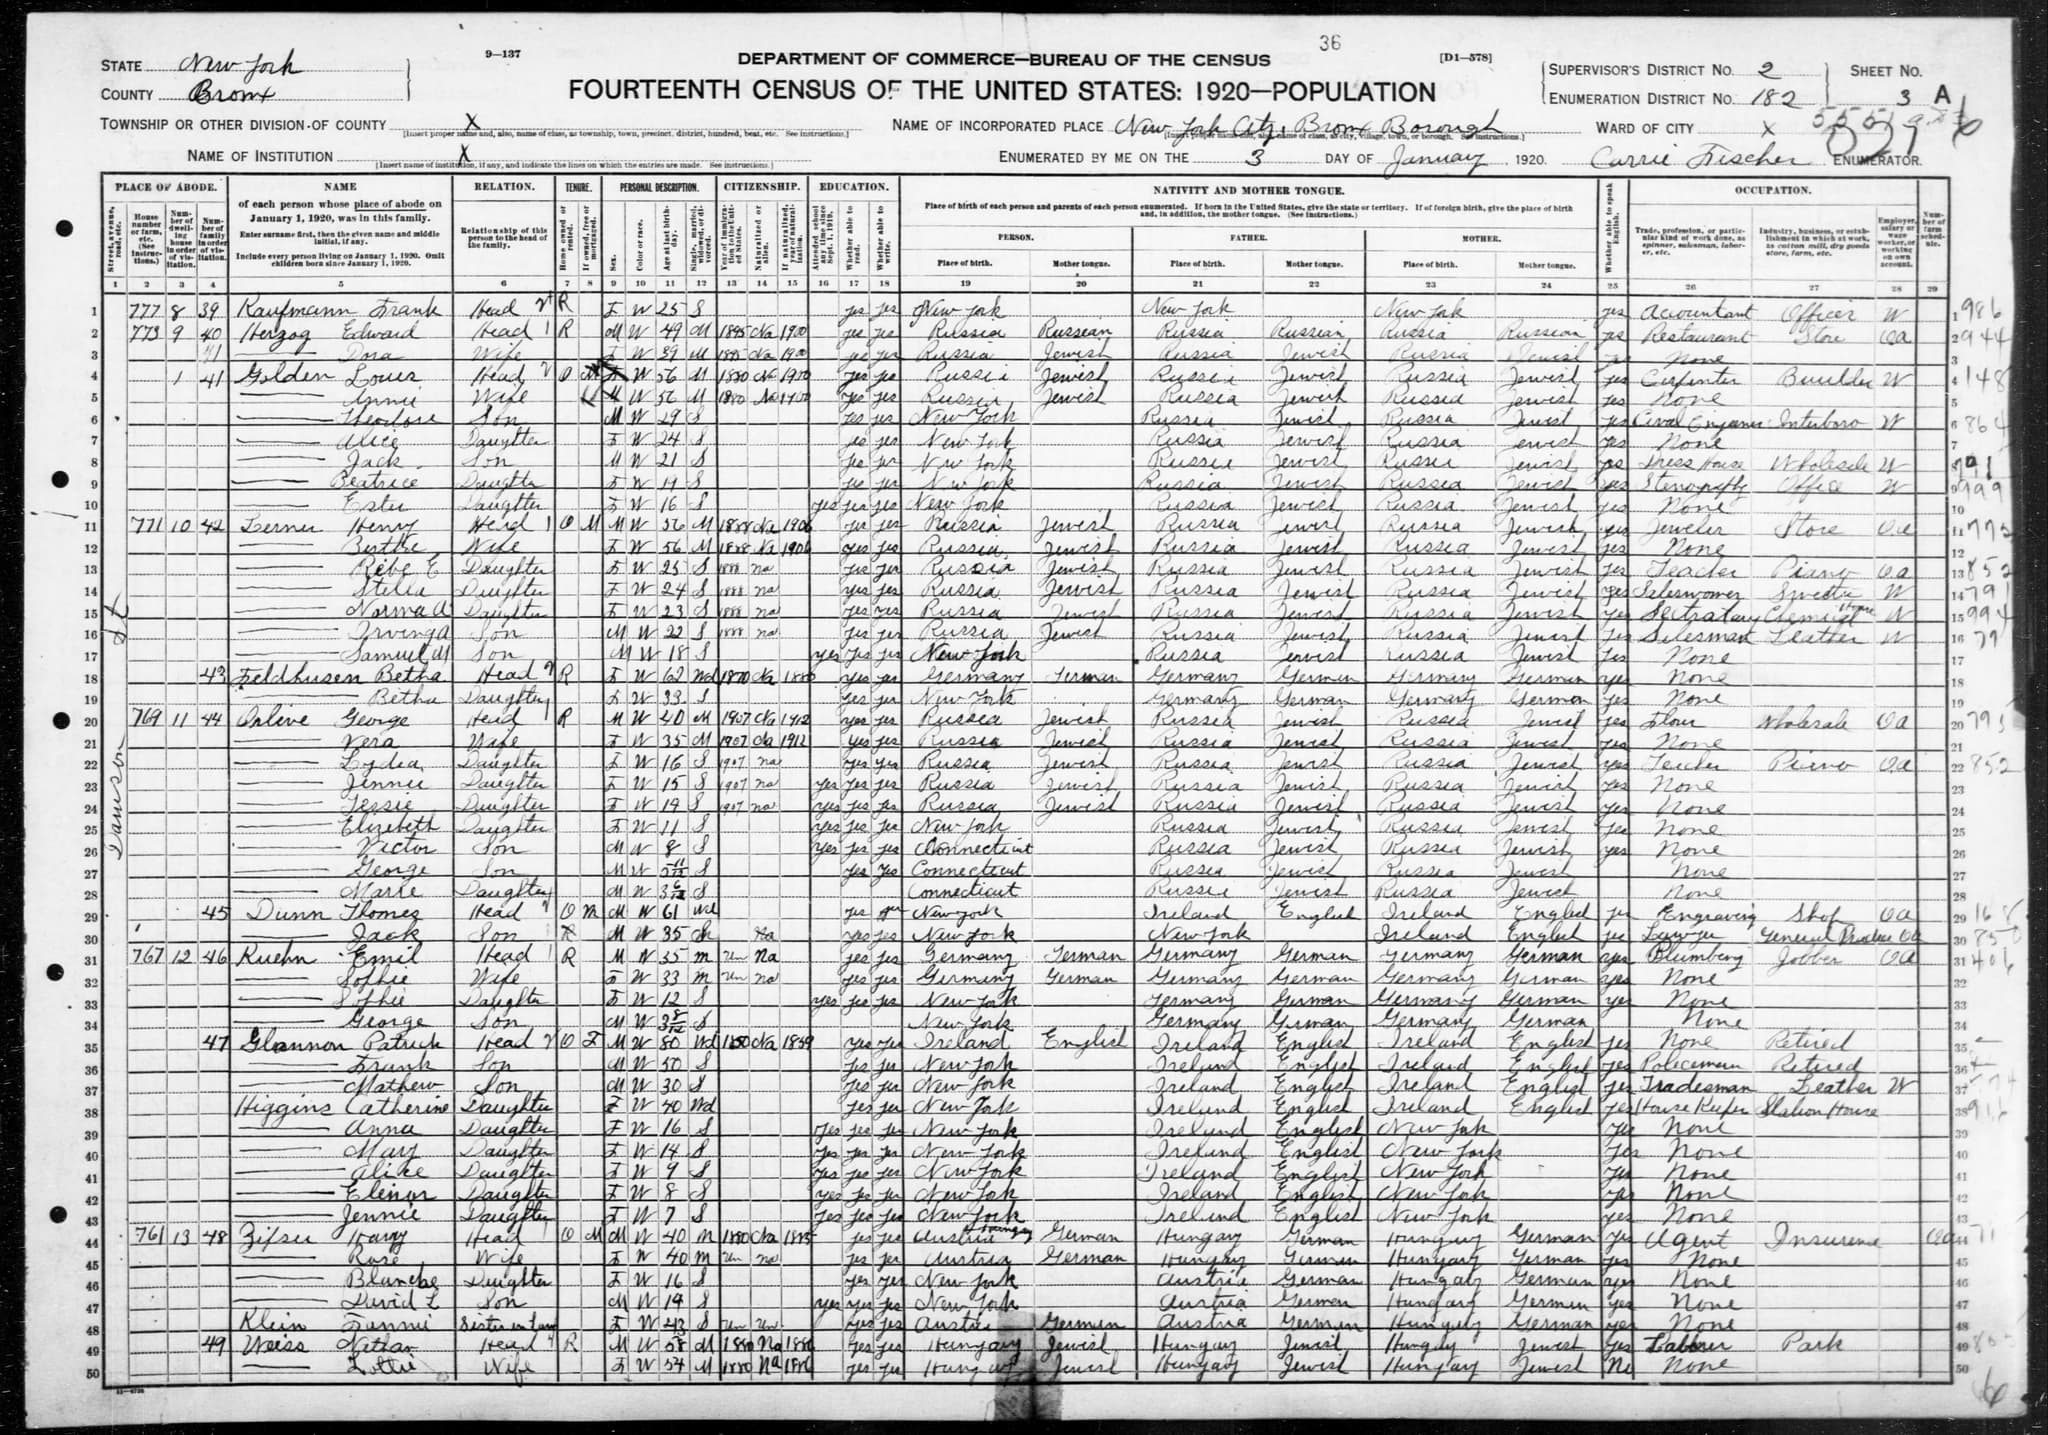 36
9—137
DEPARTMENT OF COMMERCE—BUREAU OF THE CENSUS
[D1—578]
STATE New York
FOURTEENTH CENSUS OF THE UNITED STATES: 1920—POPULATION
SUPERVISOR'S DISTRICT NO. 2 SHEET NO.
COUNTY Bronx
ENUMERATION DISTRICT NO. 182 3 A
TOWNSHIP OR OTHER DIVISION OF COUNTY X
NAME OF INCORPORATED PLACE New York City, Bronx Borough
WARD OF CITY X
NAME OF INSTITUTION X
[Insert name of institution, if any, and indicate the lines on which the entries are made. See instructions.]
ENUMERATED BY ME ON THE 3 DAY OF January, 1920. Carrie Fischer ENUMERATOR
PLACE OF ABODE. NAME RELATION. TENURE. PERSONAL DESCRIPTION. CITIZENSHIP. EDUCATION. NATIVITY AND MOTHER TONGUE. OCCUPATION.
of each person whose place of abode on January 1, 1920, was in this family.
Enter surname first, then the given name and middle initial, if any.
Include every person living on January 1, 1920. Omit children born since January 1, 1920.
Relationship of this person to the head of the family.
Place of birth of each person and parents of each person enumerated. If born in the United States, give the state or territory. If of foreign birth, give the place of birth and, in addition, the mother tongue. (See instructions.)
PERSON. FATHER. MOTHER.
Place of birth. Mother tongue. Place of birth. Mother tongue. Place of birth. Mother tongue.
1 2 3 4 5 6 7 8 9 10 11 12 13 14 15 16 17 18 19 20 21 22 23 24 25 26 27 28 29
Dawson St
1 777 8 39 Kaufmann Frank Head R F W 25 S yes yes New York New York New York yes Acountant Officer W 1 986
2 773 9 40 Herzog Edward Head R M W 49 M 1895 Na 1900 yes yes Russia Russian Russia Russian Russia Russian yes Restaurant Store Oa 2 944
3 Dora Wife F W 39 M 1895 Na 1900 yes yes Russia Jewish Russia Jewish Russia Jewish yes None 3
4 1 41 Golden Louis Head O M W 56 M 1880 Na 1900 yes yes Russia Jewish Russia Jewish Russia Jewish yes Carpinter Buulder W 4 148
5 Annie Wife W 56 M 1880 Na 1900 yes yes Russia Jewish Russia Jewish Russia Jewish yes None 5
6 Theodore Son M W 29 S yes yes New York Russia Jewish Russia Jewish yes Interboro W 6 864
7 Alice Daughter F W 24 S yes yes New York Russia Jewish Russia Jewish yes None 7
8 Jack Son M W 21 S yes yes New York Russia Jewish Russia Jewish yes Dress House Wholesale W 8
9 Beatrice Daughter F W S yes yes New York Russia Jewish Russia Jewish yes Office W 9 999
10 Ester Daughter F W 16 S yes yes yes New York Russia Jewish Russia Jewish yes None 10
11 771 10 42 Lerner Henry Head O M M W 56 M 1888 Na 1906 yes yes Russia Jewish Russia Jewish Russia Jewish yes Jeweler Store Oa 11
12 Berthe Wife F W 56 M 1888 Na 1906 yes yes Russia Jewish Russia Jewish Russia Jewish yes None 12
13 Rebe E Daughter F W 25 S 1888 na yes yes Russia Jewish Russia Jewish Russia Jewish yes Teacher Piano Oa 13 852
14 Stella Daughter F W 24 S 1888 na yes yes Russia Jewish Russia Jewish Russia Jewish yes W 14 791
15 Norma A Daughter F W 23 S 1888 na yes yes Russia Jewish Russia Jewish Russia Jewish yes Chemical House W 15 994
16 Irving A Son M W 22 S 1888 na yes yes Russia Jewish Russia Jewish Russia Jewish yes Salesman Leather W 16
17 Samuel M Son M W 18 S yes yes yes New York Russia Jewish Russia Jewish yes None 17
18 43 Feldhusen Betha Head R F W 62 Wd 1870 Na 1880 yes yes Germany German Germany German Germany German yes None 18
19 Betha Daughter F W 33 S yes yes New York Germany German Germany German yes None 19
20 769 11 44 Orlive George Head R M W 40 M 1907 Na 1912 yes yes Russia Jewish Russia Jewish Russia Jewish yes Flour Wholesale Oa 20 795
21 Vera Wife F W 35 M 1907 Na 1912 yes yes Russia Jewish Russia Jewish Russia Jewish yes None 21
22 Lydia Daughter F W 16 S 1907 na yes yes Russia Jewish Russia Jewish Russia Jewish yes Teacher Piano Oa 22 852
23 Jennie Daughter F W 15 S 1907 na yes yes yes Russia Jewish Russia Jewish Russia Jewish yes None 23
24 Jessie Daughter F W 14 S 1907 na yes yes yes Russia Jewish Russia Jewish Russia Jewish yes None 24
25 Elizebeth Daughter F W 11 S yes yes yes New York Russia Jewish Russia Jewish yes None 25
26 Victor Son M W 8 S yes yes yes Connecticut Russia Jewish Russia Jewish yes None 26
27 George Son M W 5 11/12 S yes yes Connecticut Russia Jewish Russia Jewish None 27
28 Marie Daughter M W 3 6/12 S Connecticut Russia Jewish Russia Jewish None 28
29 45 Dunn Thomes Head O M M W 61 Wd yes yes New York Ireland English Ireland English yes Engraving Shop Oa 29 168
30 Jack Son R M W 35 Na yes yes New York New York Ireland English yes Lawyer General Practice Oa 30 850
31 767 12 46 Kuehn Emil Head R M W 35 M Un Na yes yes Germany German Germany German Germany German yes Plumbing Jobber Oa 31 406
32 Sophie Wife F W 33 m Un na yes yes Germany German Germany German Germany German yes None 32
33 Sophie Daughter F W 12 S yes yes yes New York Germany German Germany German yes None 33
34 George Son M W 3 8/12 S New York Germany German Germany German None 34
35 47 Glannon Patrick Head O F M W 80 Wd 1850 Na 1859 yes yes Ireland English Ireland English Ireland English yes None Retired 35
36 Frank Son M W 50 S yes yes New York Ireland English Ireland English yes Policeman Retired 36
37 Mathew Son M W 30 S yes yes New York Ireland English Ireland English yes Tradesman Leather W 37
38 Higgins Catherine Daughter F W 40 Wd yes yes New York Ireland English Ireland English yes House Keeper Station House 38
39 Anna Daughter F W 16 S yes yes yes New York Ireland English New York yes None 39
40 Mary Daughter F W 14 S yes yes yes New York Ireland English New York yes None 40
41 Alice Daughter F W 9 S yes yes yes New York Ireland English New York yes None 41
42 Elenor Daughter F W 8 S yes yes yes New York Ireland English New York yes None 42
43 Jennie Daughter F W 7 S yes yes yes New York Ireland English New York yes None 43
44 761 13 48 Zipser Harry Head O M M W 40 M 1880 Na 1885 yes yes Austria Hungary German Hungary German Hungary German yes Agent Insurence Oa 44
45 Rose Wife F W 40 m Un na yes yes Austria German Hungary German Hungary German yes None 45
46 Blanche Daughter F W 16 S yes yes New York Austria German Hungary German yes None 46
47 David L Son M W 14 S yes yes yes New York Austria German Hungary German yes None 47
48 Klein Fannie Sister in Law F W 43 S Un Un yes yes Austria German Austria German Hungary German yes None 48
49 49 Weiss Nathan Head R M W 58 M 1880 Na 1886 yes yes Hungary Jewish Hungary Jewish Hungary Jewish yes Laborer Park 49
50 Lottie Wife F W 54 M 1880 Na 1886 yes yes Hungary Jewish Hungary Jewish Hungary Jewish No None 50